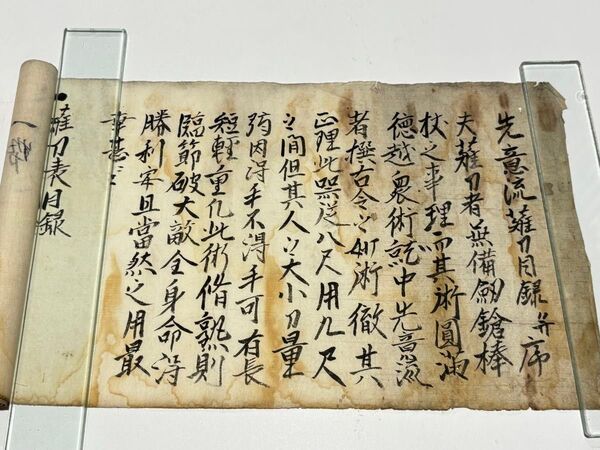 先意流薙刀目録并序
夫薙刀者無備劔鎗棒
杖之事理而其術圓満
徳越衆術就中先意流
者撰古今之妙術徹其
正理此器従八尺用九尺
之間但其人之大小力量
随因得手不得手可有長
短軽重凡此術脩熟則
臨節破大敵全身命得
勝利安且當然之用最
幸甚々
薙刀表目録
一